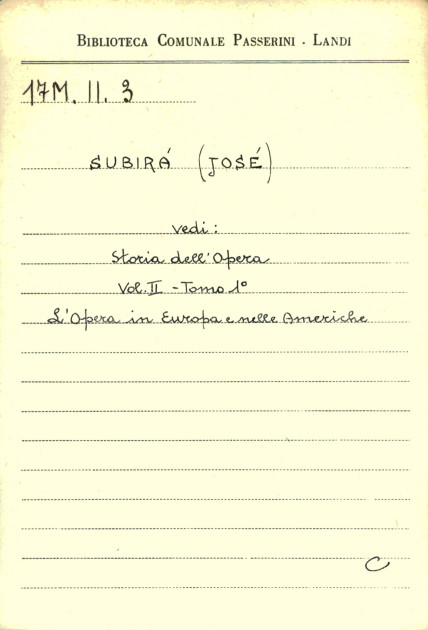 BIBLIOTECA COMUNALE PASSERINI - LANDI
17M. II. 3
SUBIRÁ (JOSÉ)
vedi:
Storia dell'Opera
Vol. II - Tomo 1°
L'Opera in Europa e nelle Americhe
C